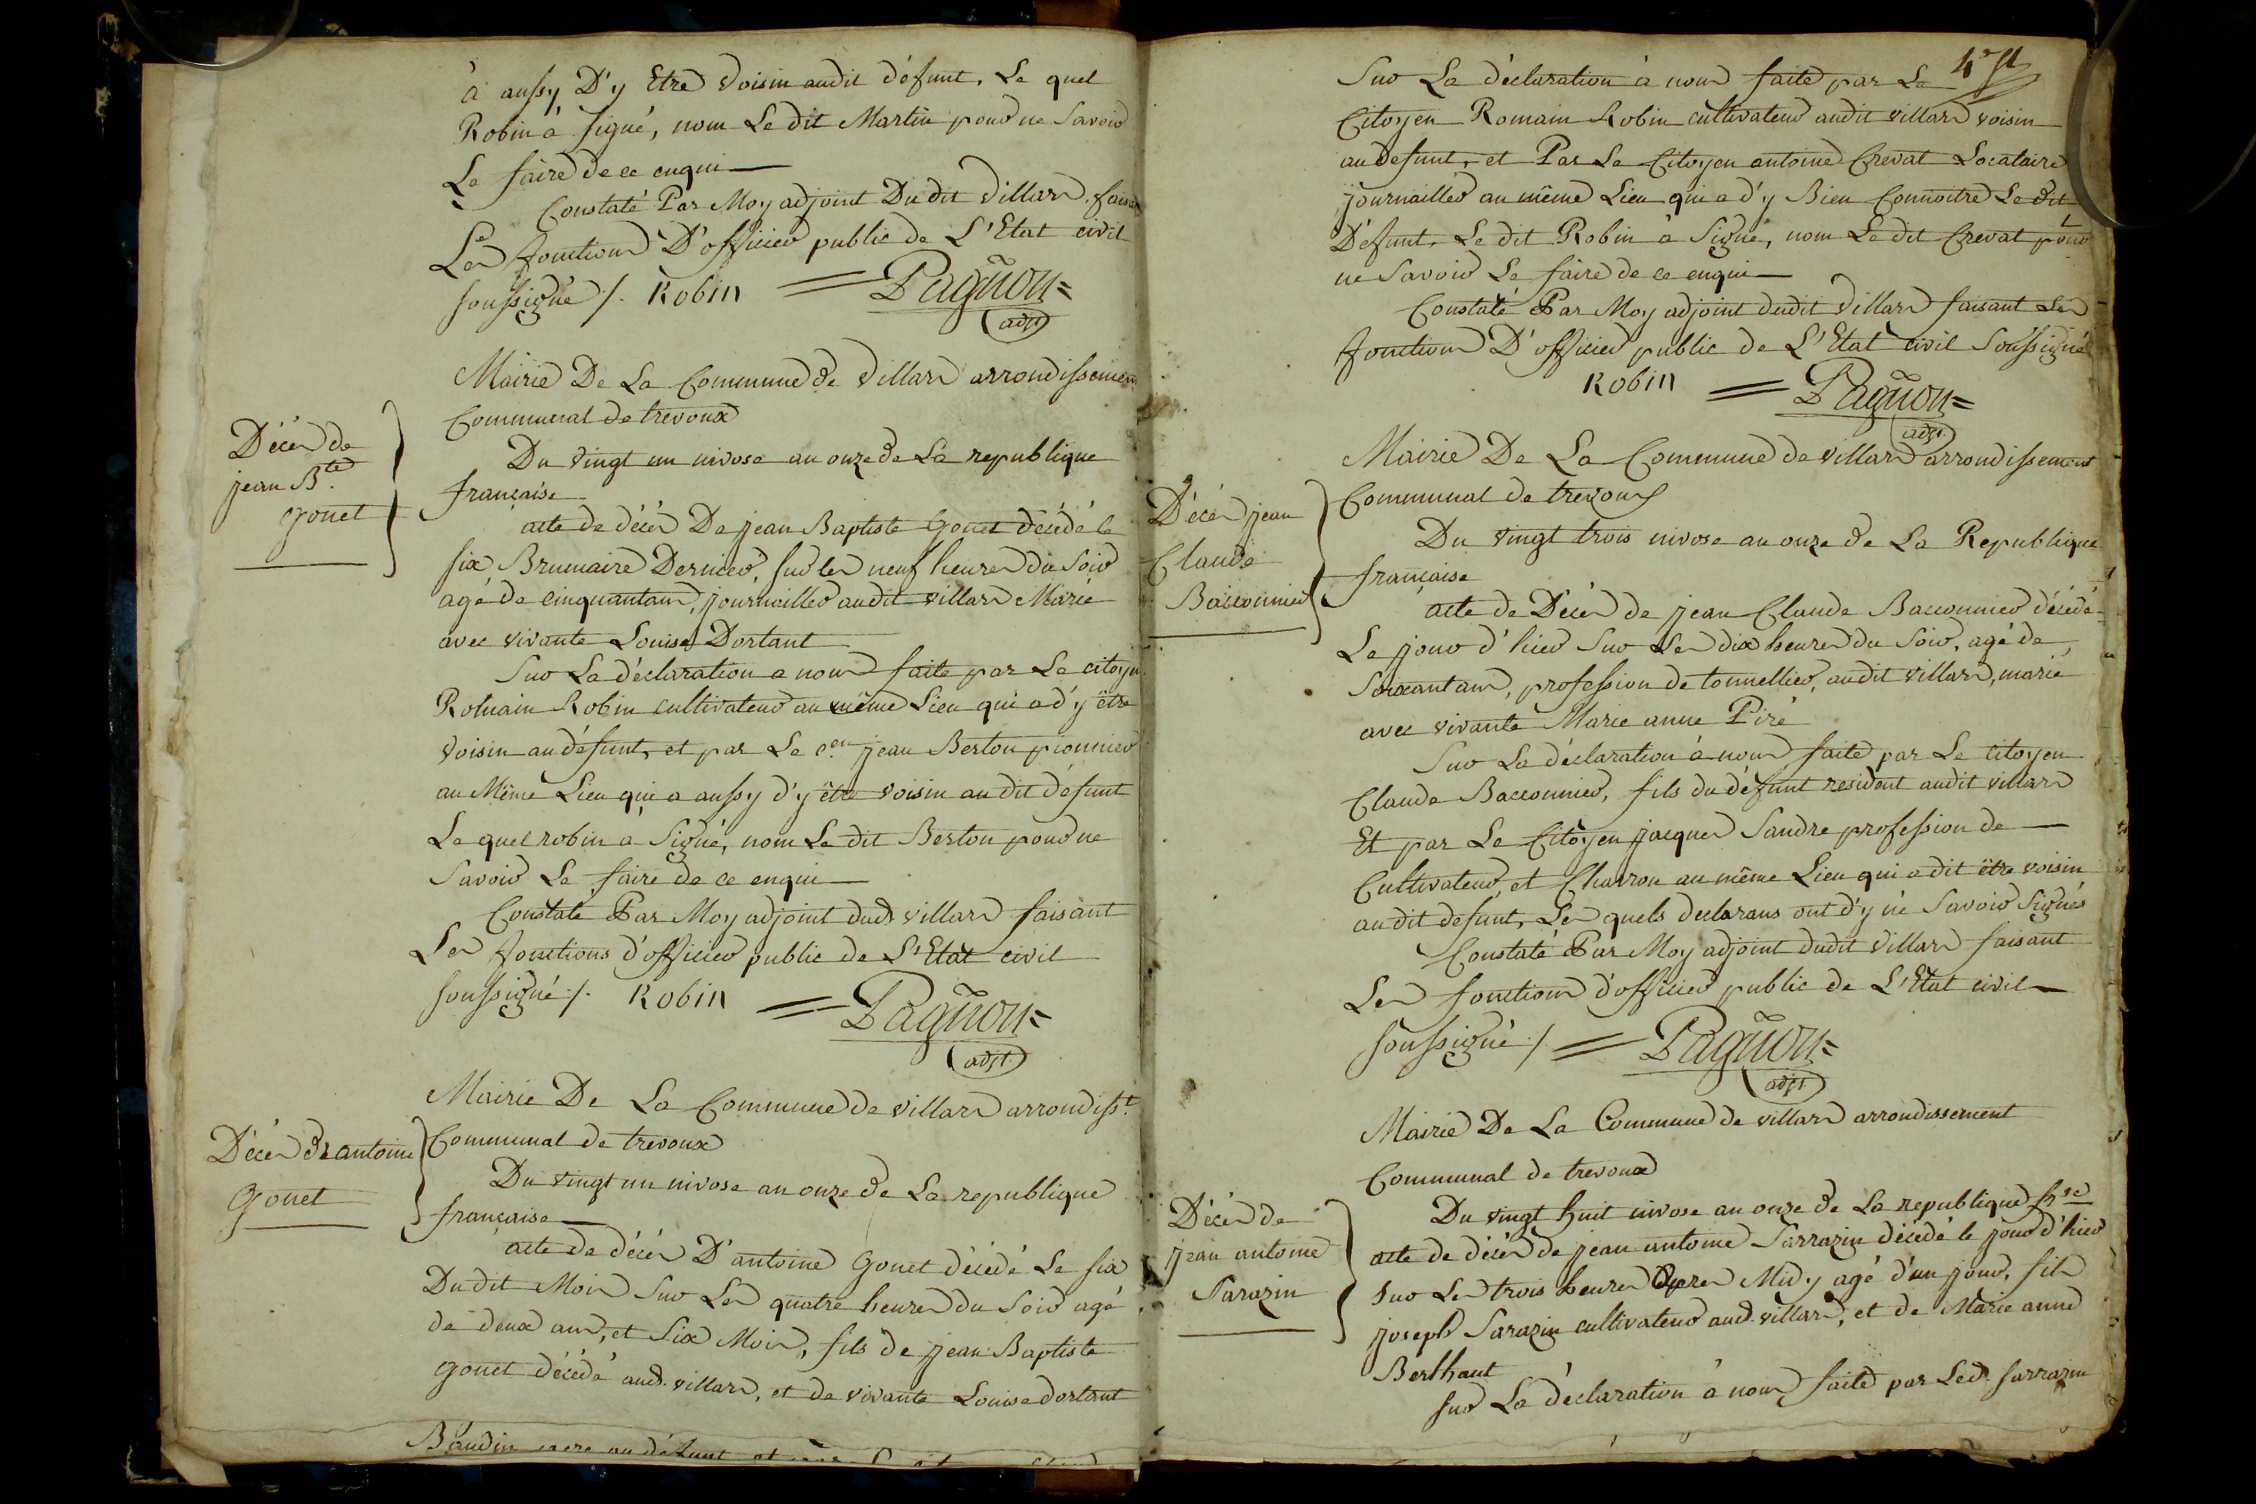 à aussy D'y Etre voisin audit défunt, Le quel
Robin à signé, nom Le dit Martin pour ne Savoir
Le faire de ce enqui
Constaté Par Moy adjoint Du dit villars faisant
Les fonctions D'officier public de L'Etat civil
soussigné /. Robin = Pagnon =
adjt
Mairie De La Commune de villars arrondissement
Communal de trevoux
Décès de
jean Bte
gonet
Du vingt un nivose an onze de La republique
française
acte de décès De jean Baptiste Gonet décédé le
six Brumaire Dernier, sur les neuf heures du Soir
agé de cinquantans, journaillier audit villars Marié
avec vivante Louise Dortant
Sur La déclaration a nous faite par Le citoyen
Romain Robin cultivateur au même Lieu qui a d'y être
voisin au défunt, et par Le cen jean Berton pionnier
au Même Lieu qui a aussy d'y être voisin au dit défunt
Le quel robin à Signé, nom Le dit Berton pour ne
Savoir Le faire de ce enqui
Constaté Par Moy adjoint dud villars faisant
Les fonctions d'officier public de L'Etat civil
soussigné /. Robin = Pagnon =
adjt
Mairie De La Commune de villars arrondisst.
Communal de trevoux
Décès de antoine
Gonet
Du vingt un nivose an onze de La republique
française
acte de décès D'antoine Gonet décédé Le six
Du dit Mois Sur Les quatre heures du Soir agé
de deux ans, et Six Mois, fils de jean Baptiste
gonet décédé aud. villars, et de vivante Louise dortant
Baudin au défunt et
4e ft
Sur La déclaration à nous faite par Le
Citoyen Romain Robin cultivateur audit villars voisin
au defunt, et Par Le Citoyen antoine Crevat Locataire
journaillier au même Lieu qui a d'y Bien Connoitre Le dit
Défunt, Le dit Robin à Signé, nom Le dit Crevat pour
ne Savoir Le faire de ce enqui
Constaté Par Moy adjoint dudit villars faisant Les
fonctions D'officier public de L'Etat civil Soussigné
Robin = Pagnon =
adjt
Mairie De La Commune de villars arrondissement
Communal de trevoux
Décès jean
Claude
Bacconnier
Du vingt trois nivose an onze de La Republique
française
acte de Décès de jean Claude Bacconnier décédé
Le jour d'hier Sur Les dix heures du Soir, agé de
Soixantans, profession de tonnellier, audit villars, marié
avec vivante Marie anne Piré
Sur La déclaration à nous faite par Le citoyen
Claude Bacconnier, fils du défunt resident audit villars
Et par Le Citoyen jacques Sandre profession de
Cultivateur, et Charron au même Lieu qui a dit être voisin
audit defunt, Les quels declarans ont d'y ne Savoir Signés
Constaté Par Moy adjoint dudit villars faisant
Les fonctions d'officier public de L'Etat civil
soussigné /. = Pagnon =
adjt
Mairie De La Commune de villars arrondissement
Communal de trevoux
Décès de
jean antoine
Sarazin
Du vingt huit nivose an onze de La republique fse
acte de décès de jean antoine Sarrazin décédé le jour d'hier
sur Les trois heures apres Midy agé d'un jour, fils
joseph Sarazin cultivateur aud. villars, et de Marie anne
Berthaut
sur La déclaration à nous faite par Led. sarrazin